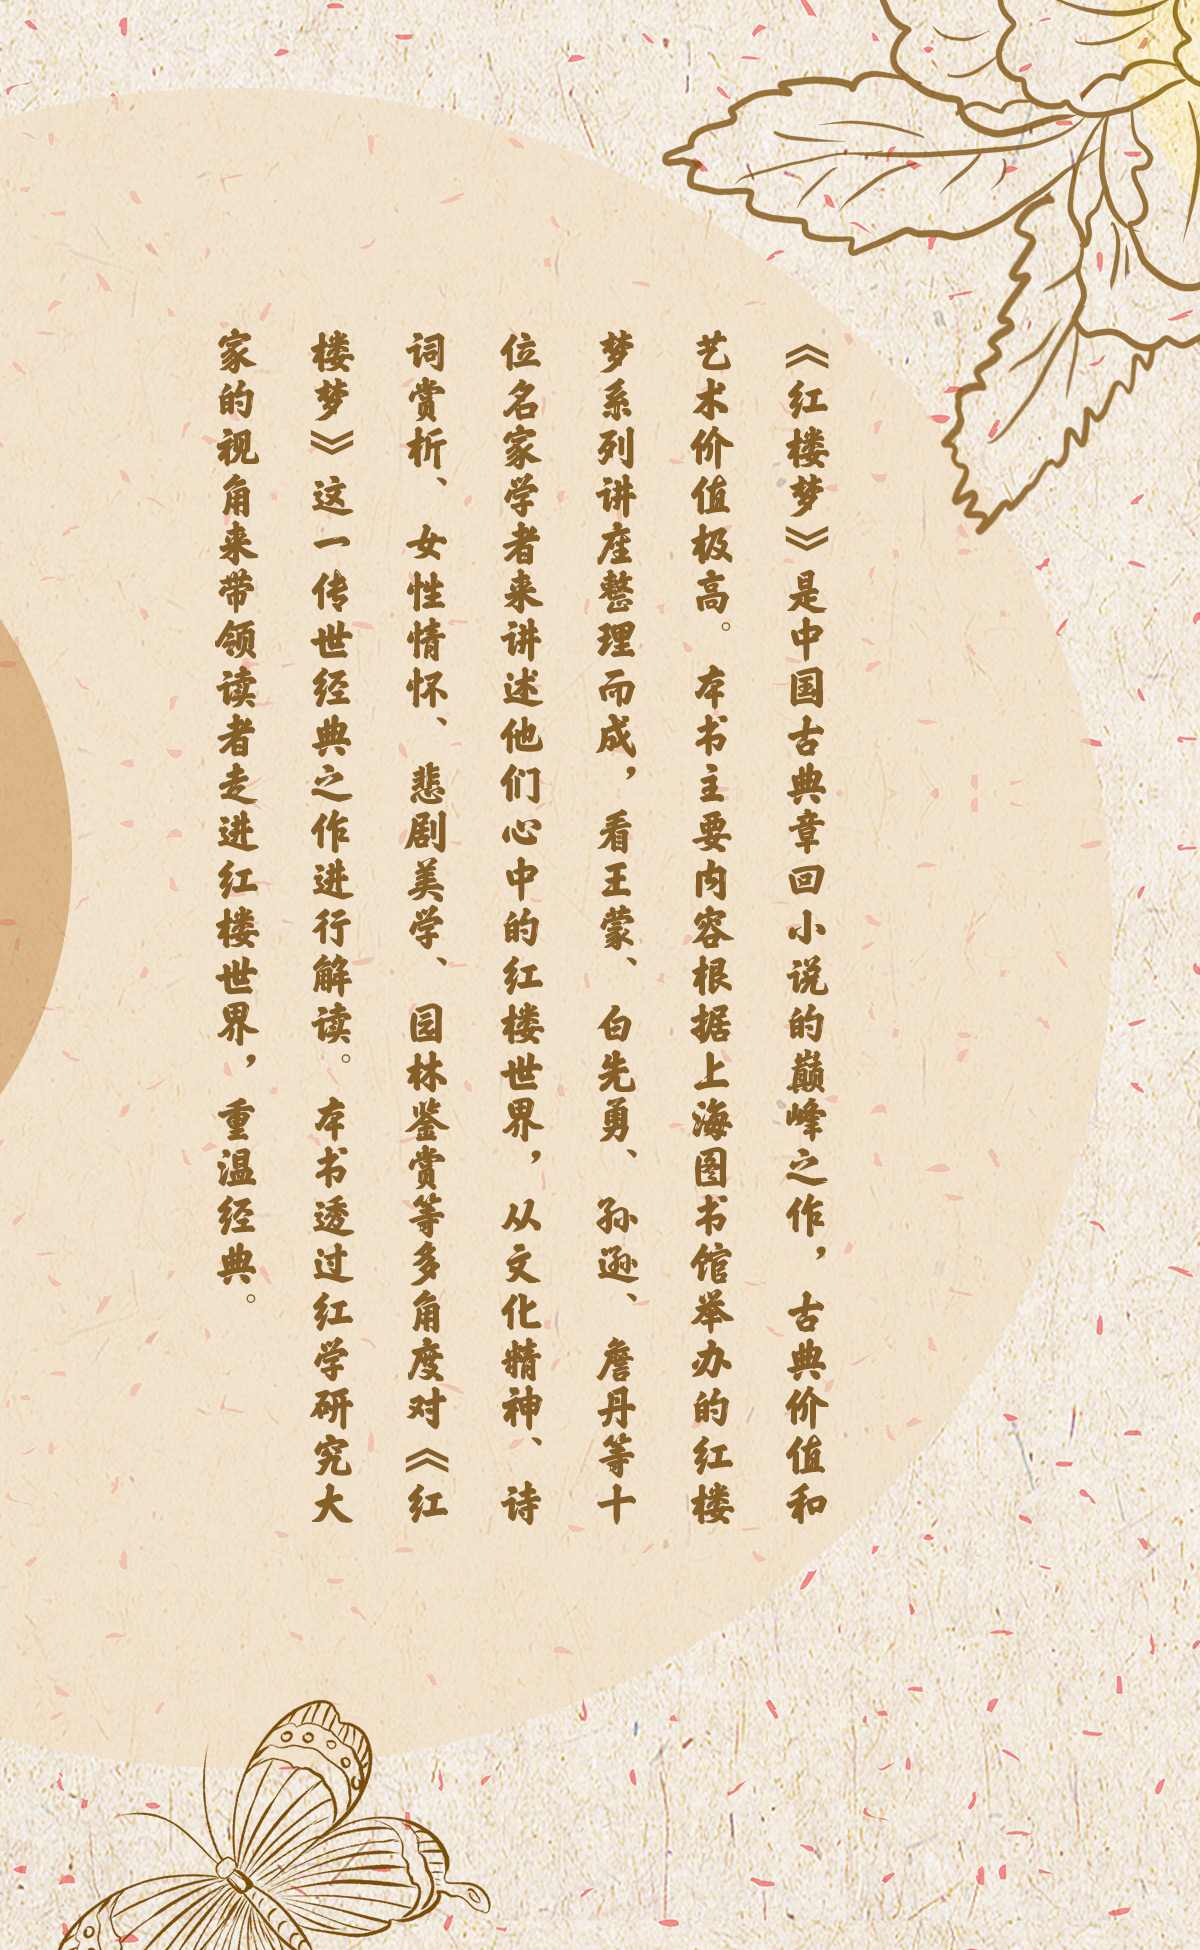 《红楼梦》是中国古典章回小说的巅峰之作，古典价值和
艺术价值极高。本书主要内容根据上海图书馆举办的红楼
梦系列讲座整理而成，看王蒙、白先勇、孙逊、詹丹等十
位名家学者来讲述他们心中的红楼世界，从文化精神、诗
词赏析、女性情怀、悲剧美学、园林鉴赏等多角度对《红
楼梦》这一传世经典之作进行解读。本书透过红学研究大
家的视角来带领读者走进红楼世界，重温经典。